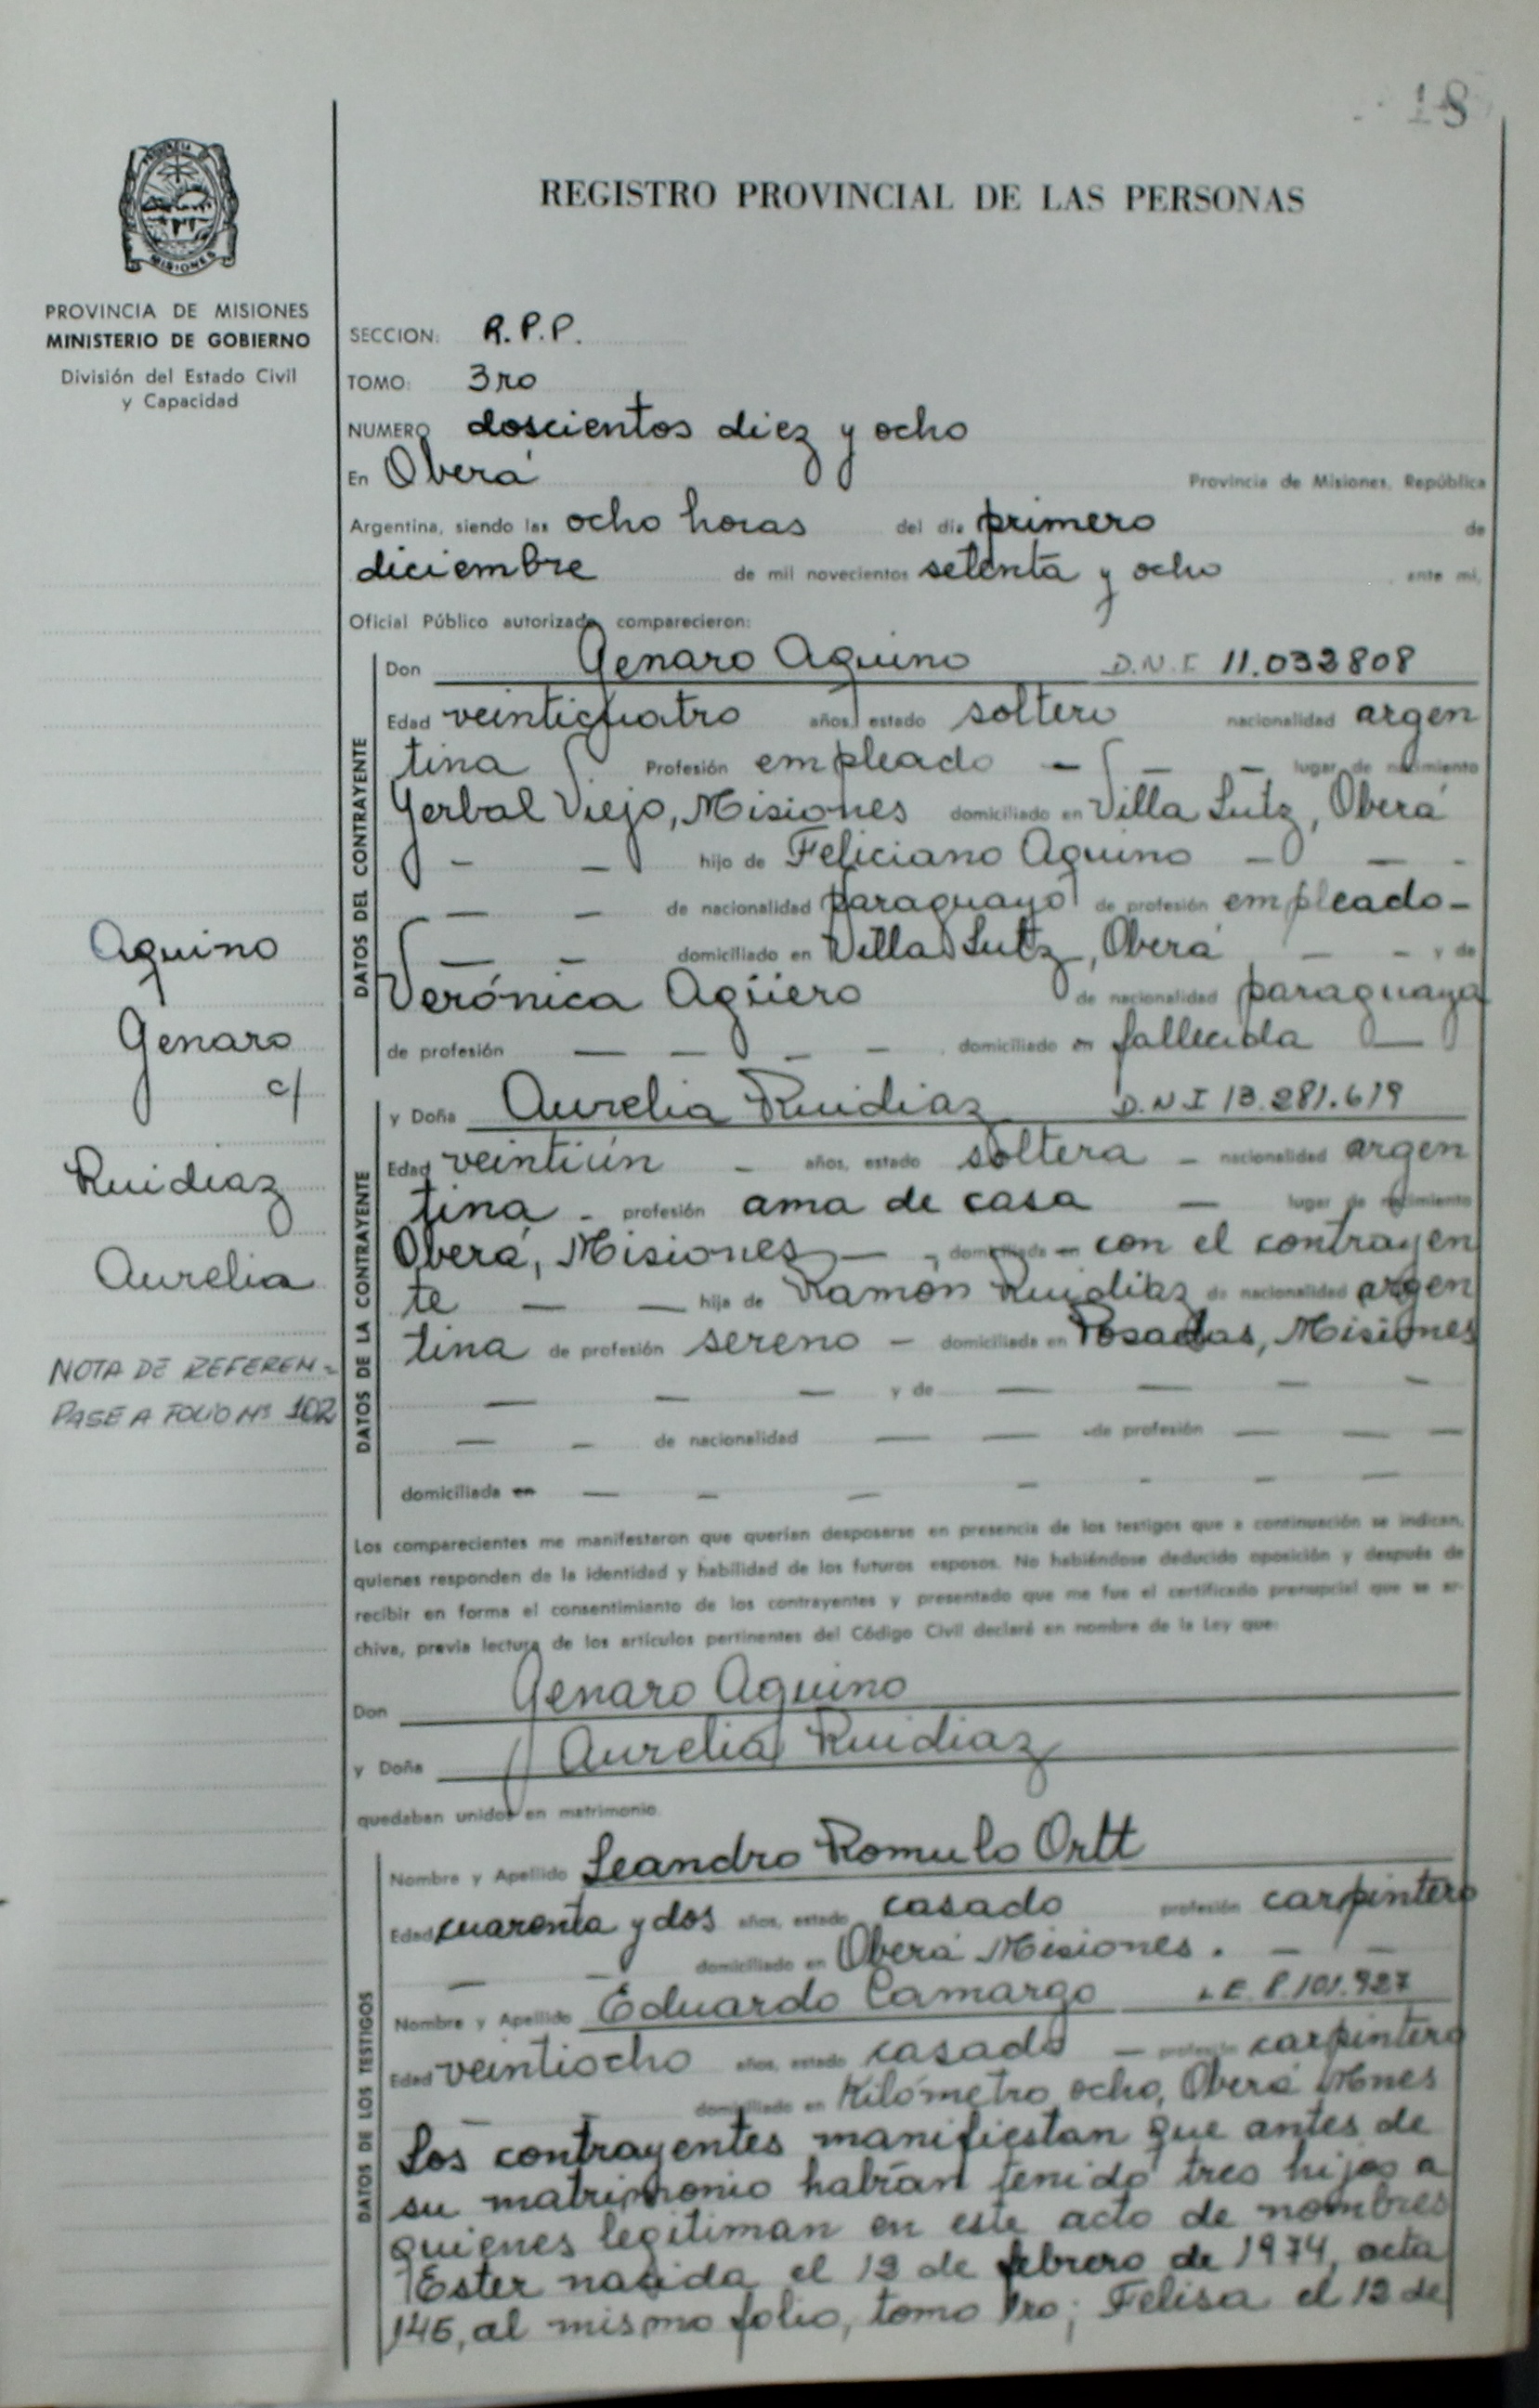 18
PROVINCIA DE
MISIONES
REGISTRO PROVINCIAL DE LAS PERSONAS
PROVINCIA DE MISIONES
MINISTERIO DE GOBIERNO
División del Estado Civil
y Capacidad
SECCION: R.P.P.
TOMO: 3ro
NUMERO doscientos diez y ocho
En Oberá Provincia de Misiones, República
Argentina, siendo las ocho horas del día primero de
diciembre de mil novecientos setenta y ocho ante mi,
Oficial Público autorizado comparecieron:
DATOS DEL CONTRAYENTE
Don Genaro Aquino D.N.I 11.032808
Edad veinticuatro años, estado soltero nacionalidad argen
tina Profesión empleado — — — lugar de nacimiento
Yerbal Viejo, Misiones domiciliado en Villa Lutz, Oberá
— — hijo de Feliciano Aquino — — -
— — de nacionalidad paraguayo de profesión empleado-
— — domiciliado en Villa Lutz, Oberá — - y de
Verónica Agüero de nacionalidad paraguaya
de profesión — — — — domiciliado en fallecida —
Aquino
Genaro
c/
Ruidiaz
Aurelia
NOTA DE REFEREN-
PASE A FOLIO Nº 102
DATOS DE LA CONTRAYENTE
y Doña Aurelia Ruidiaz D.N.I 13.281.619
Edad veintiún - años, estado soltera - nacionalidad argen
tina - profesión ama de casa — lugar de nacimiento
Oberá, Misiones — - domiciliada en con el contrayen
te — — hija de Ramón Ruidiaz de nacionalidad argen
tina de profesión sereno - domiciliada en Posadas, Misiones
— — — y de — — — —
— — de nacionalidad — — de profesión — — —
domiciliada en — — — — - — —
Los comparecientes me manifestaron que querían desposarse en presencia de los testigos que a continuación se indican,
quienes responden de la identidad y habilidad de los futuros esposos. No habiéndose deducido oposición y después de
recibir en forma el consentimiento de los contrayentes y presentado que me fue el certificado prenupcial que se ar-
chiva, previa lectura de los artículos pertinentes del Código Civil declaré en nombre de la Ley que:
Don Genaro Aquino
y Doña Aurelia Ruidiaz
quedaban unidos en matrimonio.
DATOS DE LOS TESTIGOS
Nombre y Apellido Leandro Romulo Ortt
Edad cuarenta y dos años, estado casado profesión carpintero
— — domiciliado en Oberá Misiones. — —
Nombre y Apellido Eduardo Camargo L.E. 8.101.927
Edad veintiocho años, estado casado — profesión carpintero
— — domiciliado en Kilómetro ocho, Oberá Mnes
Los contrayentes manifiestan que antes de
su matrimonio habían tenido tres hijos a
quienes legitiman en este acto de nombres
Ester nacida el 12 de febrero de 1974, acta
145, al mismo folio, tomo 1ro; Felisa el 12 de